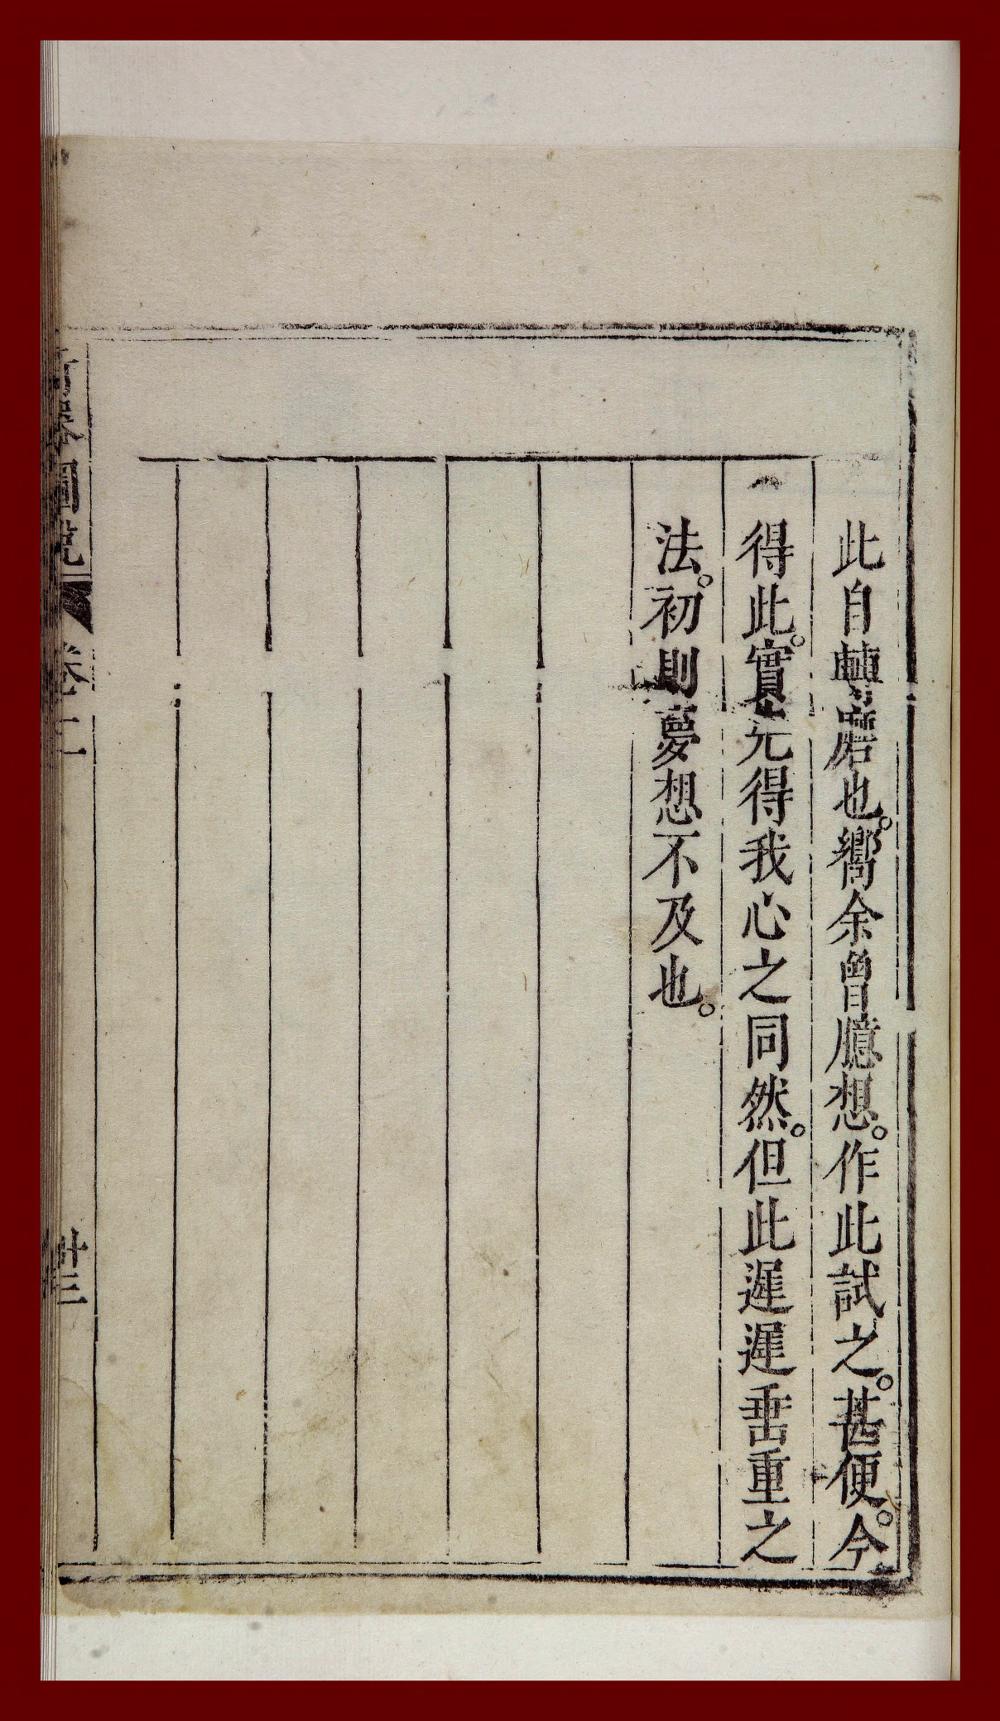 此自轉磨也。嚮余曾臆想。作此試之。甚便。今
得此。實先得我心之同然。但此遲遲垂重之
法。初則夢想不及也。
圖說
卷二
卅三